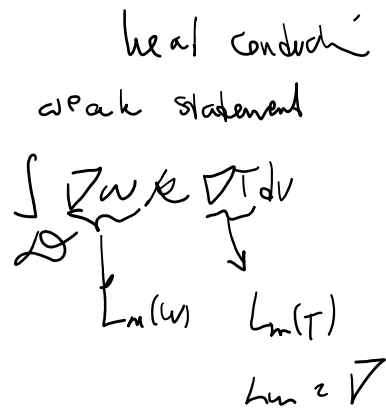 heat conducti
weak statement
∫_D ∇w κ ∇T dv
L_m(w) L_m(T)
L_m = ∇